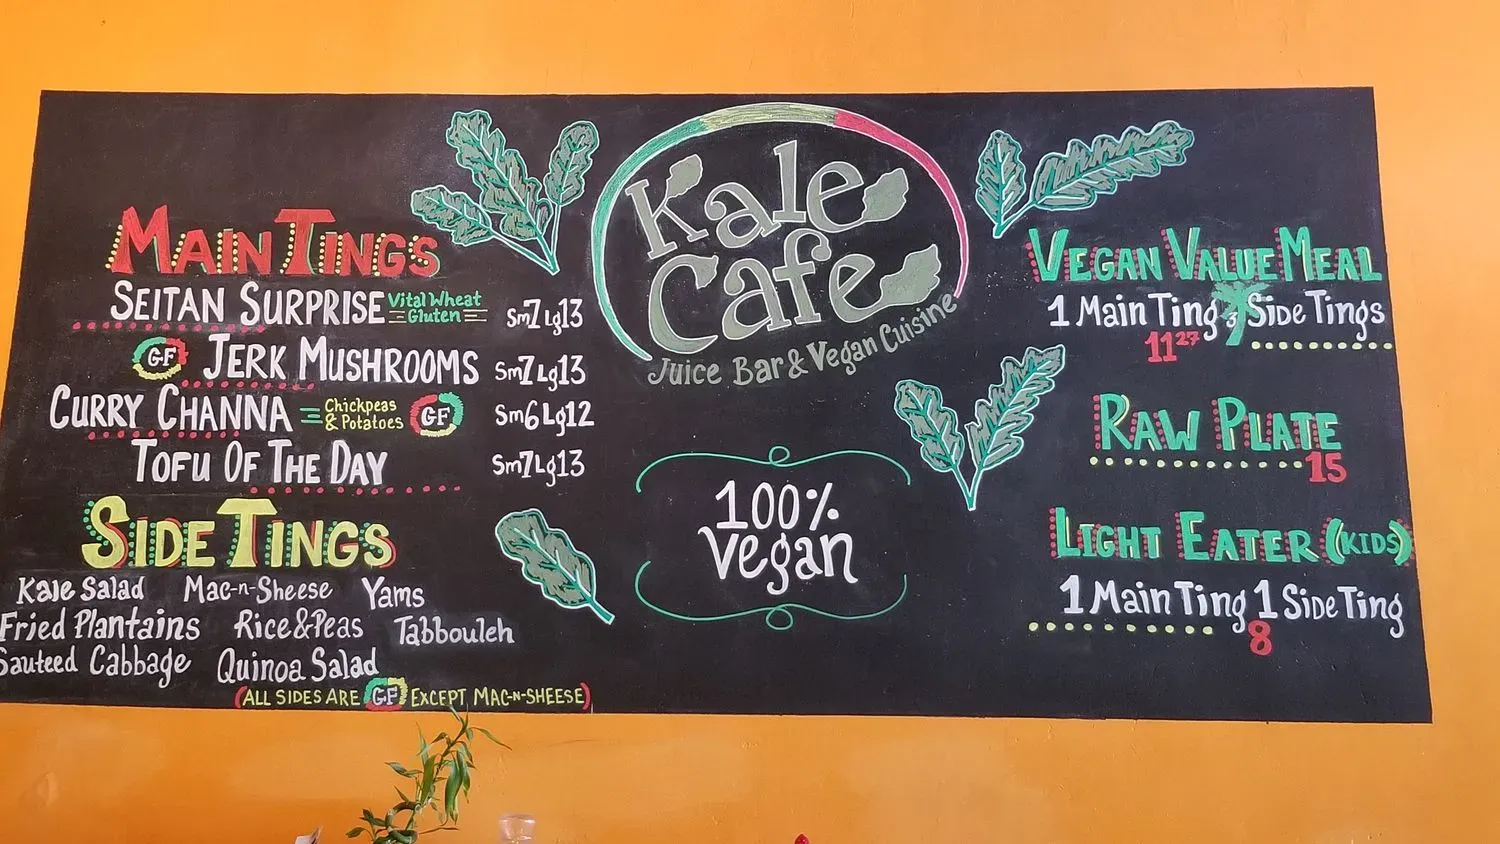 MAIN TINGS
SEITAN SURPRISE Vital Wheat Gluten Sm7 Lg13
GF JERK MUSHROOMS Sm7 Lg13
CURRY CHANNA Chickpeas & Potatoes GF Sm6 Lg12
TOFU OF THE DAY Sm7 Lg13
SIDE TINGS
Kale Salad Mac-n-Sheese Yams
Fried Plantains Rice & Peas Tabbouleh
Sauteed Cabbage Quinoa Salad
(ALL SIDES ARE GF EXCEPT MAC-N-SHEESE)
Kale
Cafe
Juice Bar & Vegan Cuisine
100%
vegan
VEGAN VALUE MEAL
1 Main Ting 3 Side Tings
11 27
RAW PLATE
15
LIGHT EATER (KIDS)
1 Main Ting 1 Side Ting
8